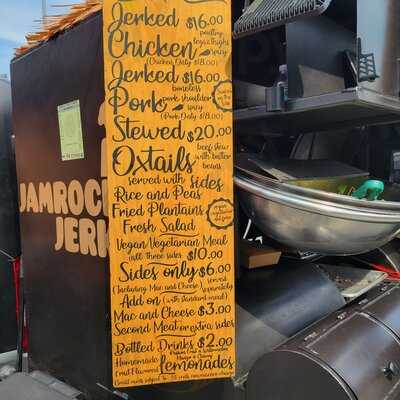 Jerked $16.00
poultry
legs & thighs
Chicken spicy
(Chicken Only $18.00)
Jerked $16.00
boneless
Pork pork shoulder
spicy
(Pork Only $18.00)
Stewed $20.00
Oxtails beef stew
with butter
beans
served with sides
Rice and Peas
Fried Plantains
Fresh Salad
Vegan Vegetarian Meal
all three sides $10.00
Sides only $6.00
(Including Mac and Cheese) served
separately
Add on (with standard meal)
Mac and Cheese $3.00
Second Meat or extra sides
Bottled Drinks $2.00
Homemade
Fruit Flavored Lemonades
JAMROCK
JERK